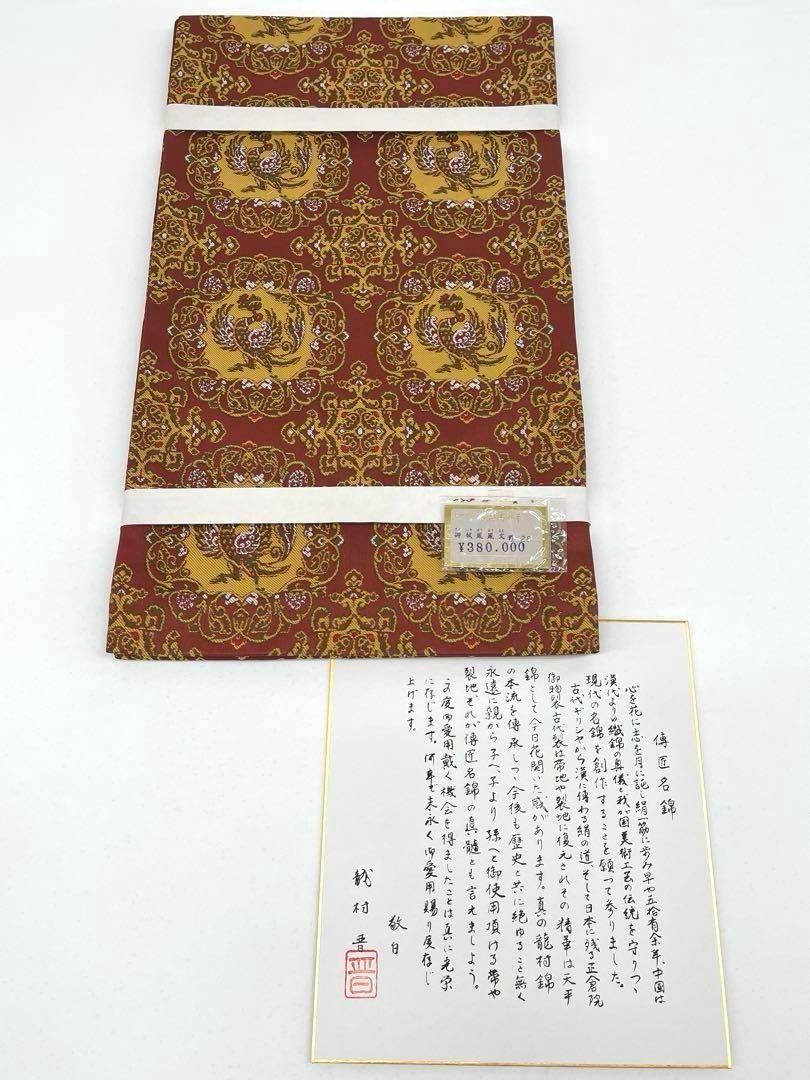 御杖鳳凰文
¥380.000
傳匠名錦
心を花に志を月に託し絹一筋に歩み早や五拾有余年、中国は
漢代よりの織錦の奥儀と我が国美術工芸の伝統を守りつゝ
現代の名錦を創作することを願って参りました。
古代ギリシヤから漢に傳わる絹の道、そして日本に残る正倉院
御物裂古代裂は帯地や裂地に復元されその精華は天平
錦として今日花開いた感があります。真の龍村錦
の本流を傳承しつゝ今後も歴史と共に絶ゆること無く
永遠に親から子へ、子より孫へと御使用頂ける帯や
裂地、それが傳匠名錦の真髄とも言えましょう。
この度御愛用戴く機会を得ましたことは真に光栄
に存じます。何卒末永く御愛用賜り度存じ
上げます。
敬白
龍村晋
晋